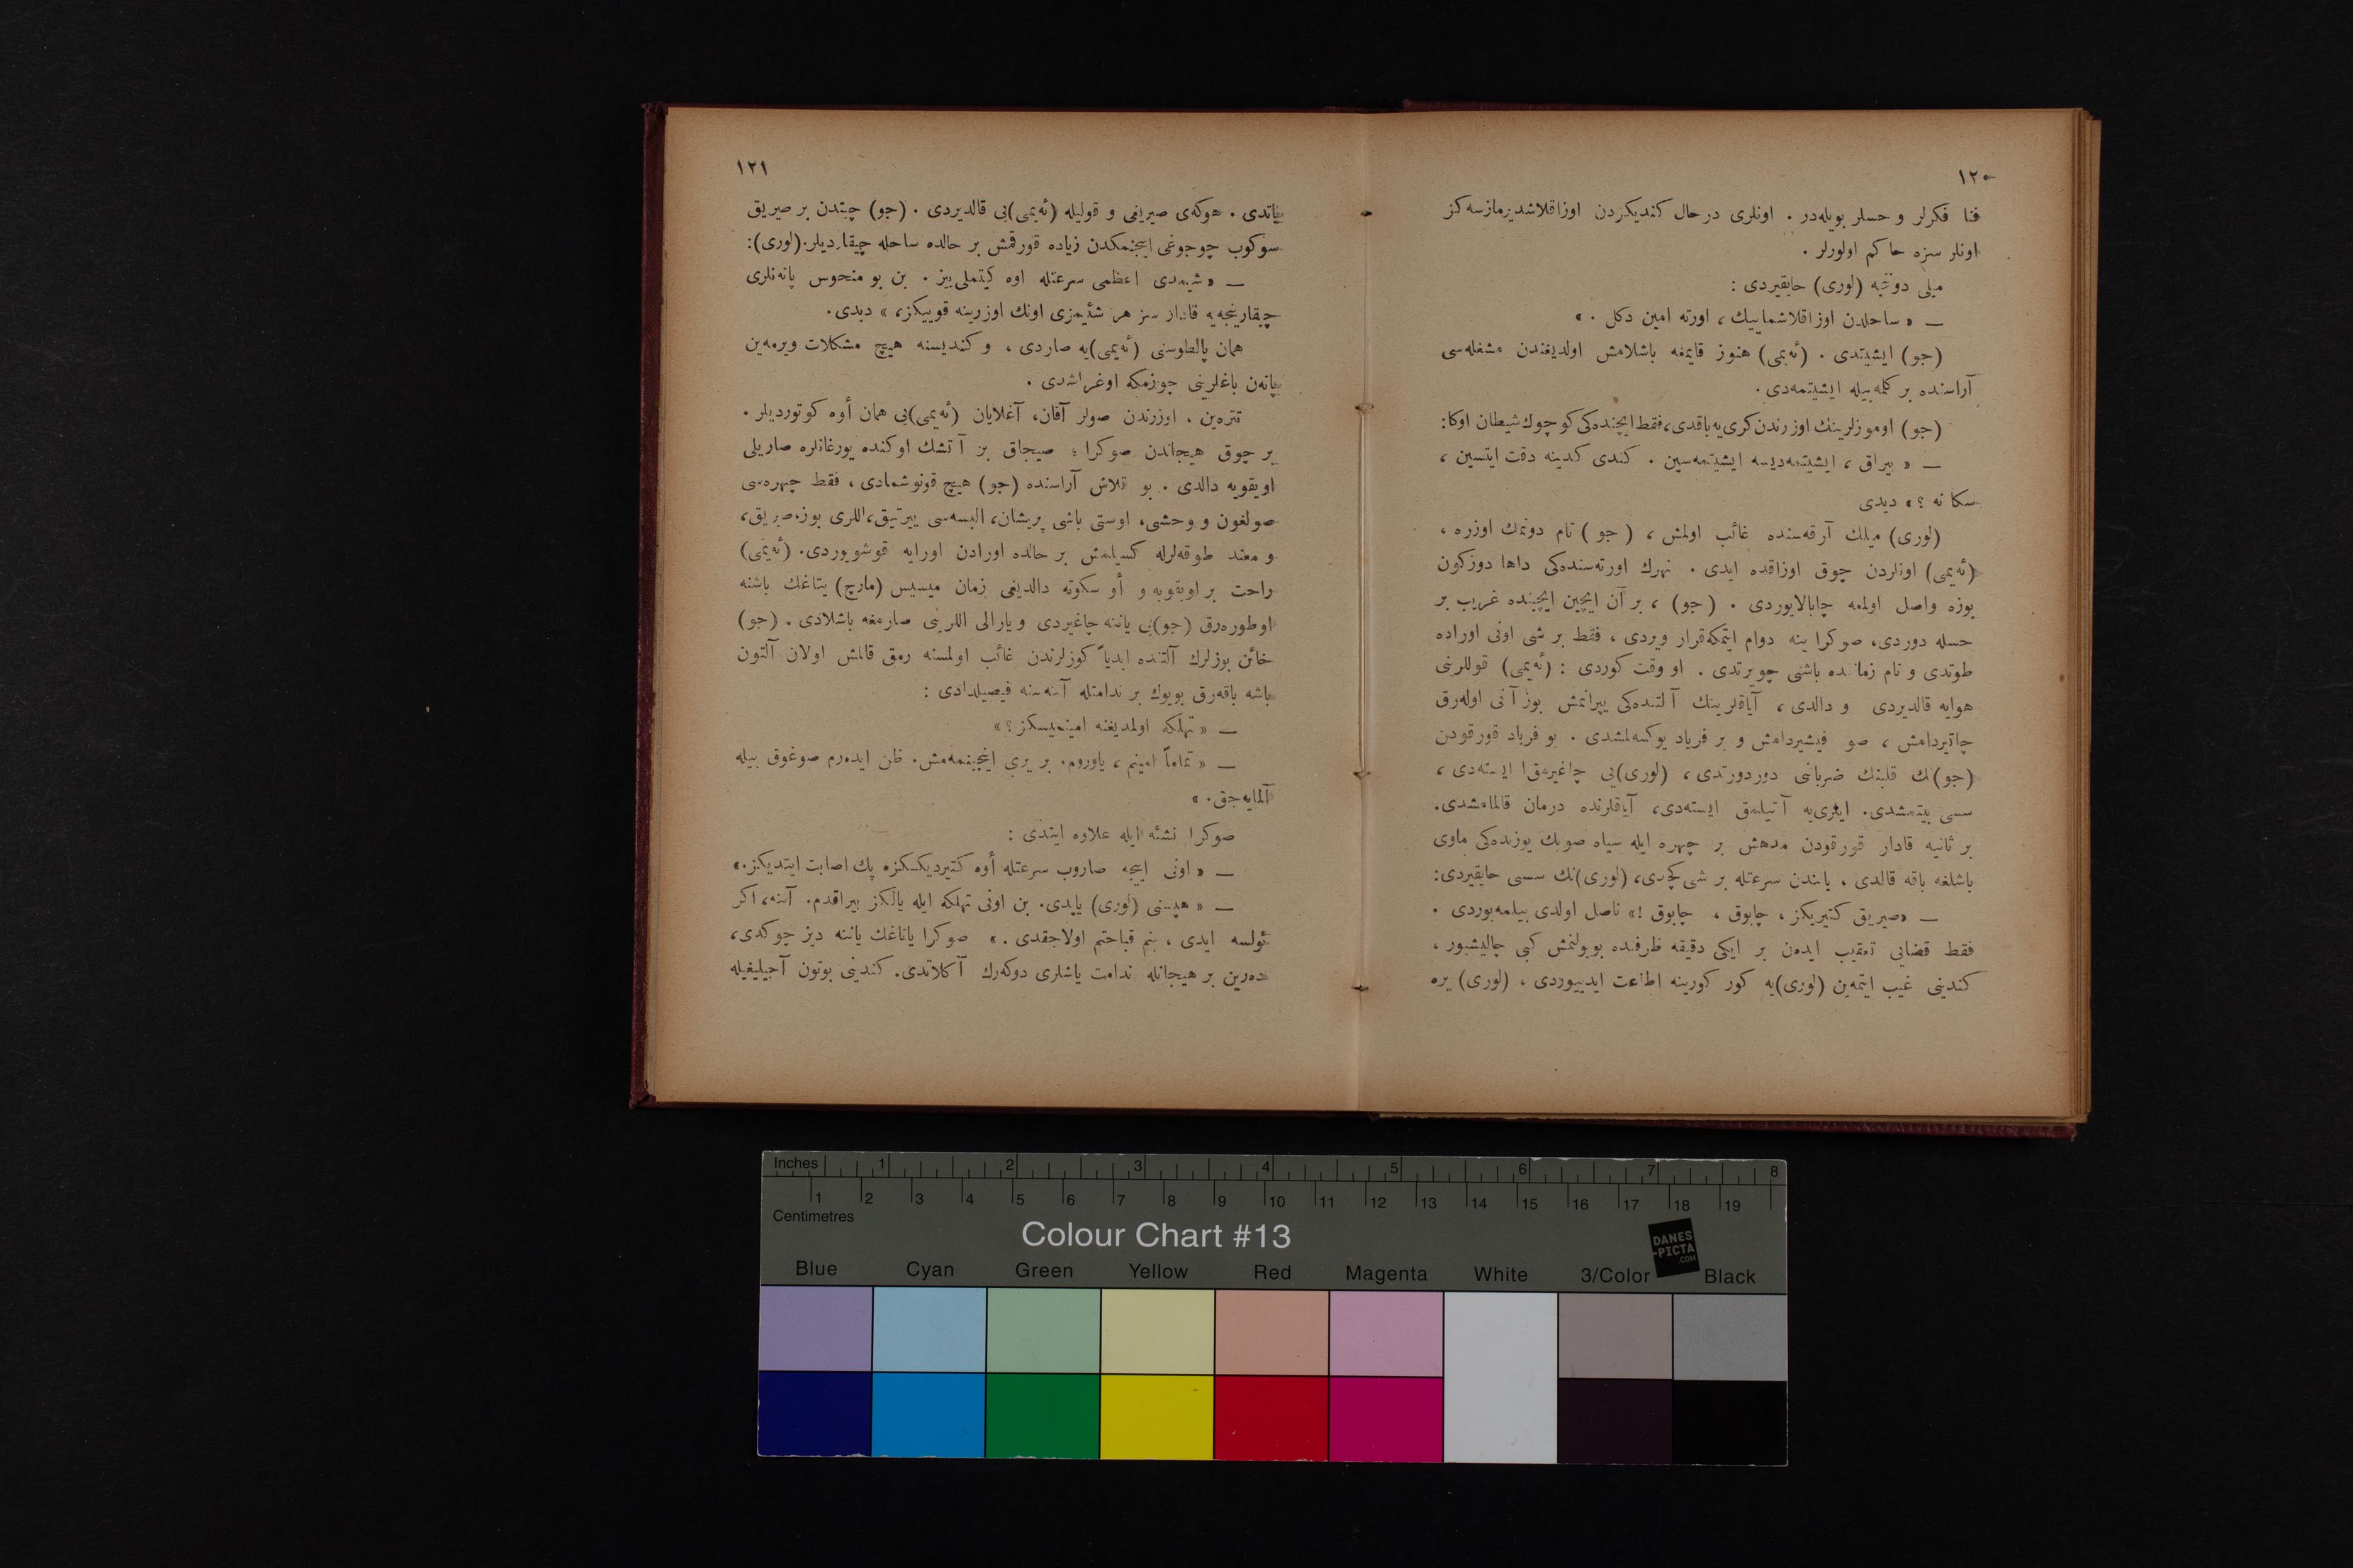 ١٢٠
فنا فكرلر و حسلر بويله‌در . اونلرى درحال كنديكزدن اوزاقلاشديرمازسه‌كز
اونلر سزه حاكم اولورلر .
ميلى دونجه (لورى) حايقيردى :
— « ساحلدن اوزاقلاشماييك ، اورته امين دكل . »
(جو) ايشيتدى . (ئه‌يمى) هنوز قايمغه باشلامش اولديغندن مشغله‌سى
آراسنده بر كلمه بيله ايشيتمه‌دى .
(جو) اوموزلرينك اوزرندن كرى‌يه باقدى، فقط ايچنده‌كى كوچوك شيطان اوكا :
— « بيراق ، ايشيتمه‌ديسه ايشيتمه‌سين . كندى كندينه دقت ايتسين ،
سكا نه ؟ » ديدى
(لورى) ميلك آرقه‌سنده غائب اولمش ، (جو) تام دونمك اوزره ،
(ئه‌يمى) اونلردن چوق اوزاقده ايدى . نهرك اورته‌سنده‌كى داها دوزكون
بوزه واصل اولمغه چابالايوردى . (جو) ، بر آن ايچين ايچنده غريب بر
حسله دوردى، صوكرا ينه دوام ايتمكه قرار ويردى ، فقط بر شى اونى اوراده
طوتدى و تام زماننده باشنى چويرتدى . او وقت كوردى : (ئه‌يمى) قوللرينى
هوايه قالديردى و دالدى ، آياقلرينك آلتنده‌كى ييپرانمش بوز آنى اوله‌رق
چاتيردامش ، صو فيشيردامش و بر فرياد يوكسه‌لمشدى . بو فرياد قورقودن
(جو)نك قلبنك ضرباننى دوردورتدى ، (لورى)يى چاغيرمق ايسته‌دى ،
سسى بيتمشدى. ايلرى‌يه آتيلمق ايسته‌دى، آياقلرنده درمان قالمامشدى.
بر ثانيه قادار قورقودن مدهش بر چهره ايله سياه صونك يوزنده‌كى ماوى
باشلغه باقه قالدى ، يانندن سرعتله بر شى كچدى، (لورى)نك سسى حايقيردى:
— «صيريق كتيريكز ، چابوق ، چابوق !» ناصل اولدى بيلمه‌يوردى .
فقط قضايى تعقيب ايده‌ن بر ايكى دقيقه ظرفنده بويولنمش كبى چاليشيور ،
كندينى غيب ايتمه‌ين (لورى)يه كور كورينه اطاعت ايدييوردى ، (لورى) يره
١٢١
ياتدى . هوكه‌ى صيريغى و قوليله (ئه‌يمى)يى قالديردى . (جو) چيتدن بر صيريق
سوكوب چوجوغى اينجتمكدن زياده قورقمش بر حالده ساحله چيقارديلر.(لورى):
— « شيمدى اعظمى سرعتله اوه كيتملى‌ييز . بن بو منحوس پاته‌نلرى
چيقارينجه‌يه قادار سز هر شئيمزى اونك اوزرينه قوييكز، » ديدى.
همان پالطوسنى (ئه‌يمى)يه صاردى ، و كنديسنه هيچ مشكلات ويرمه‌ين
پاته‌ن باغلرينى چوزمكه اوغراشدى .
تتره‌ين . اوزرندن صولر آقان، آغلايان (ئه‌يمى)يى همان أوه كوتورديلر .
بر چوق هيجاندن صوكرا ؛ صيجاق بر آتشك اوكنده يورغانلره صاريلى
اويقويه دالدى . بو تلاش آراسنده (جو) هيچ قونوشمادى ، فقط چهره‌سى
صولغون و وحشى، اوستى باشى پريشان، البسه‌سى ييرتيق، اللرى بوز، صيريق،
و معند طوقه‌لرله كسيلمش بر حالده اورادن اورايه قوشويوردى. (ئه‌يمى)
راحت بر اويقويه و أو سكوته دالديغى زمان ميسيس (مارچ) يتاغك باشنه
اوطوره‌رق (جو)يى ياننه چاغيردى و يارالى اللرينى صارمغه باشلادى . (جو)
خائن بوزلرك آلتنده ابدياً كوزلرندن غائب اولمسنه رمق قالمش اولان آلتون
باشه باقه‌رق بويوك بر ندامتله آننه‌سنه فيصيلدادى :
— « تهلكه اولمديغنه امينميسكز ؟ »
— « تماماً امينم ، ياوروم. بر يرى اينجينمه‌مش. ظن ايده‌رم صوغوق بيله
آلمايه‌جق. »
صوكرا نشئه ايله علاوه ايتدى :
— « اونى اييجه صاروب سرعتله أوه كتيرديككزه پك اصابت ايتديكز.»
— « هپسنى (لورى) ياپدى. بن اونى تهلكه ايله يالكز بيراقدم. آننه، اكر
ئولسه ايدى ، بنم قباحتم اولاجقدى . » صوكرا ياتاغك ياننه ديز چوكدى،
ده‌رين بر هيجانله ندامت ياشلرى دوكه‌رك آكلاتدى. كندينى بوتون آجيليغيله
Inches 1 2 3 4 5 6 7 8
1 2 3 4 5 6 7 8 9 10 11 12 13 14 15 16 17 18 19
Centimetres
Colour Chart #13
DANES
-PICTA
.COM
Blue Cyan Green Yellow Red Magenta White 3/Color Black